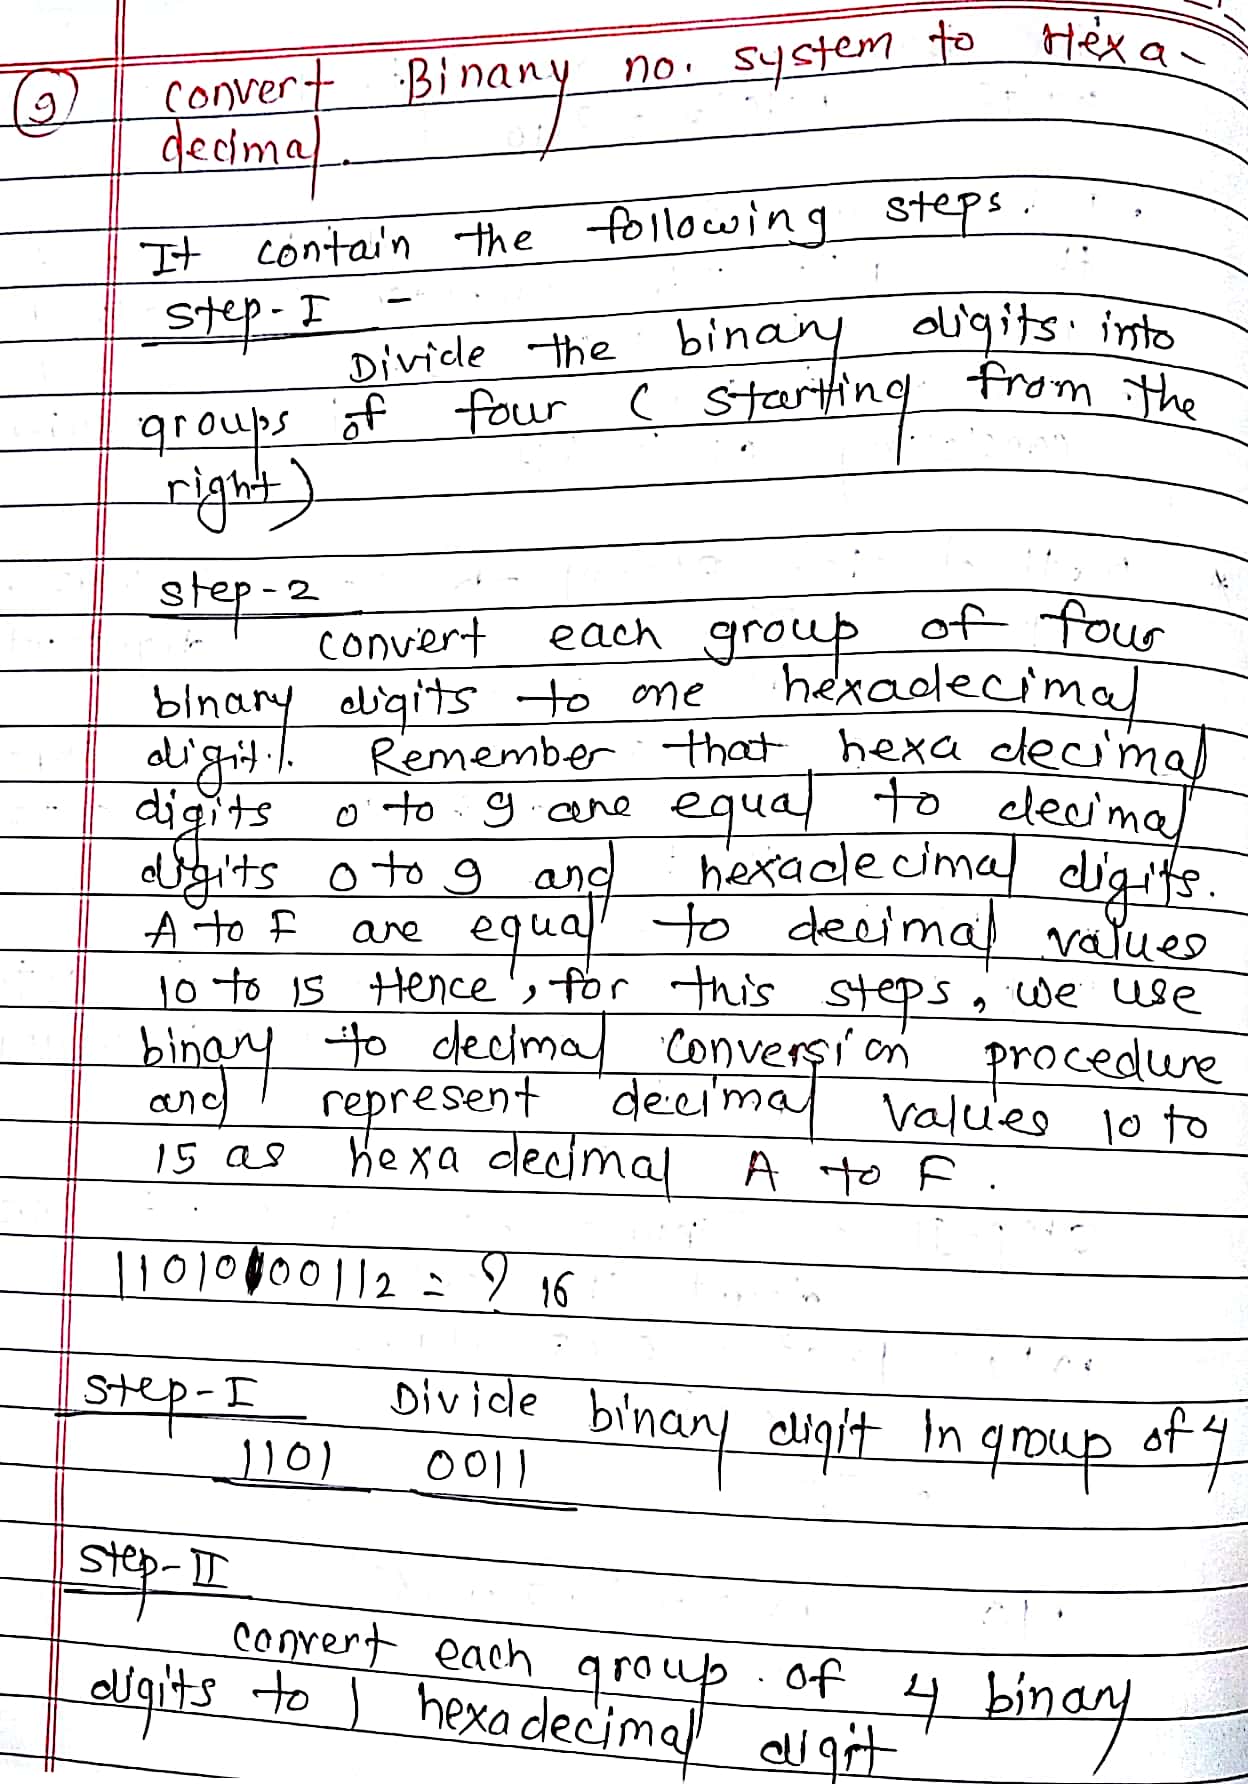 9 convert Binary no. system to Hexa-
decimal.
It contain the following steps.
step-I -
Divide the binary digits into
groups of four ( starting from the
right)
step-2
convert each group of four
binary digits to one hexadecimal
digit. Remember that hexa decimal
digits 0 to 9 are equal to decimal
digits 0 to 9 and hexadecimal digits.
A to F are equal to decimal values
10 to 15 Hence, for this steps, we use
binary to decimal conversion procedure
and represent decimal values 10 to
15 as hexa decimal A to F.
11010 0011₂ = ? 16
step-I Divide binary digit In group of 4
1101 0011
step-II
convert each group of 4 binary
digits to 1 hexadecimal digit